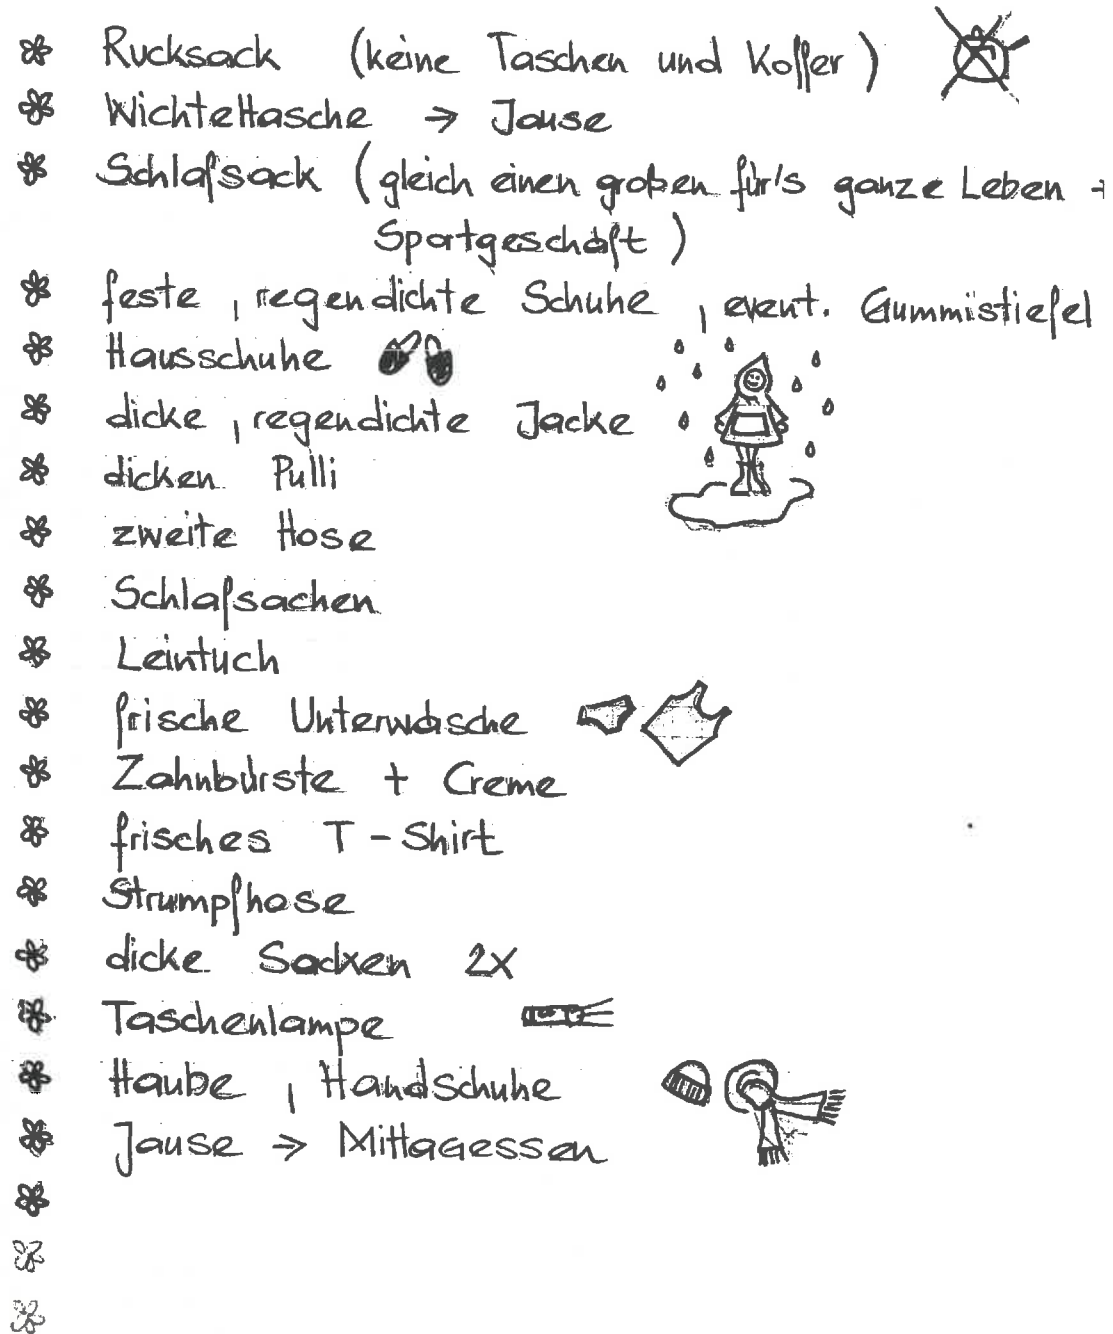 Rucksack (keine Taschen und Koffer)
Wichteltasche → Jause
Schlafsack (gleich einen großen für's ganze Leben →
Sportgeschäft)
feste, regendichte Schuhe, event. Gummistiefel
Hausschuhe
dicke, regendichte Jacke
dicken Pulli
zweite Hose
Schlafsachen
Leintuch
frische Unterwäsche
Zahnbürste + Creme
frisches T-Shirt
Strumpfhose
dicke Socken 2x
Taschenlampe
Haube, Handschuhe
Jause → Mittagessen